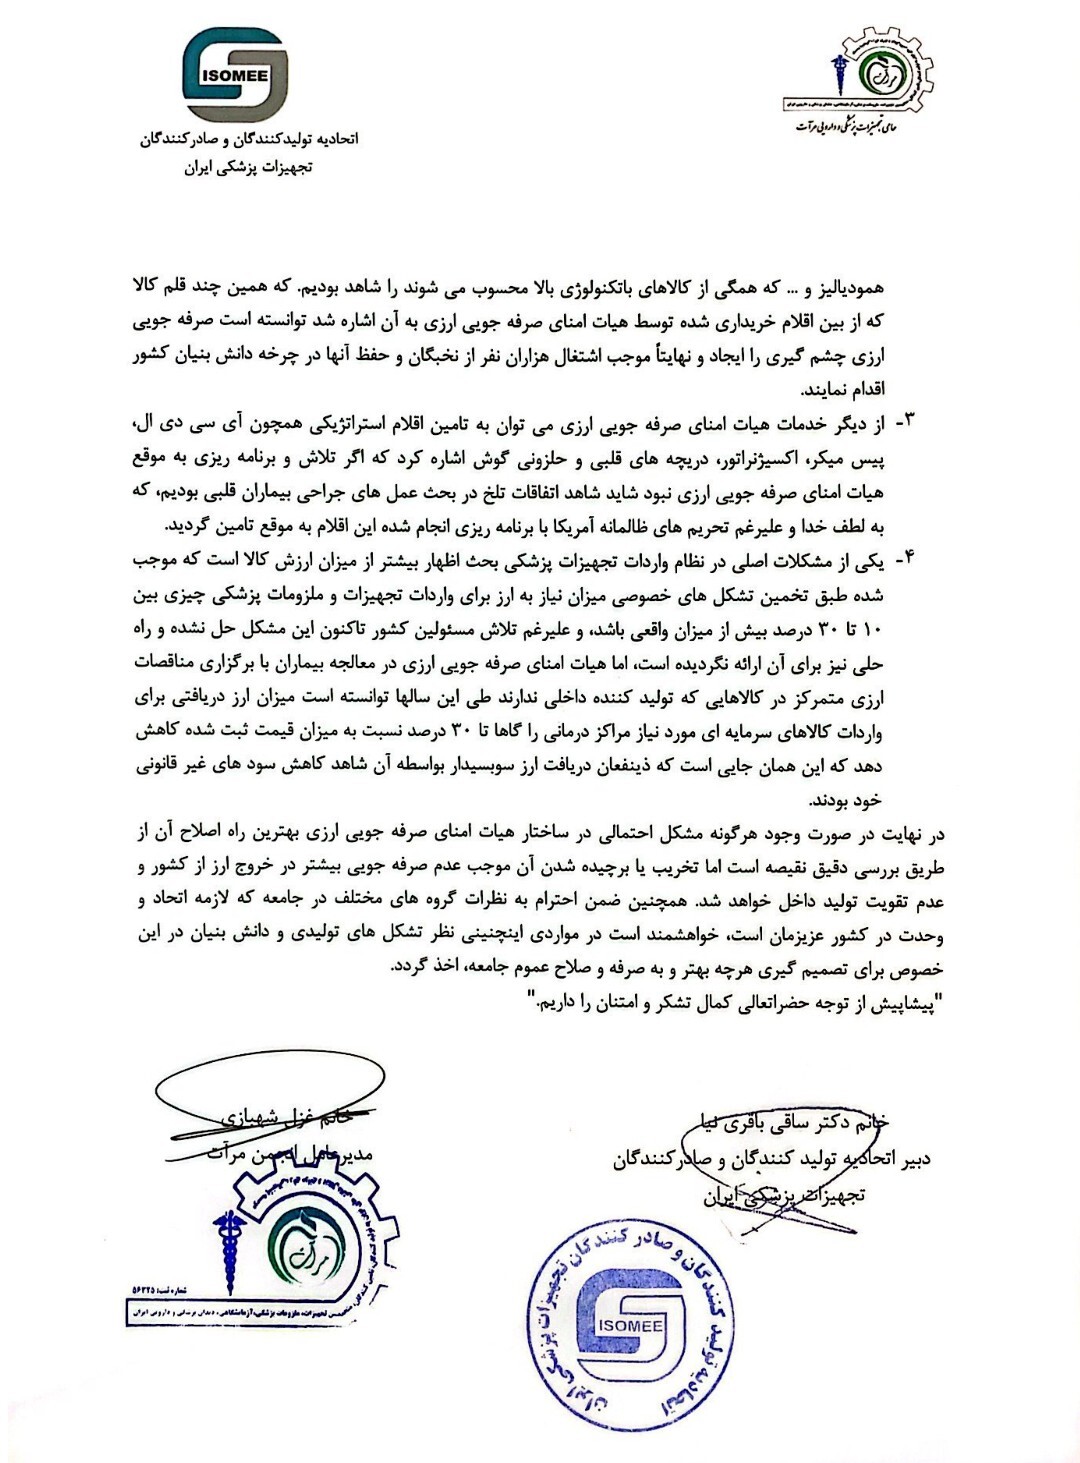 ISOMEE
اتحادیه تولیدکنندگان و صادرکنندگان
تجهیزات پزشکی ایران
مرآت
حامی تجهیزات پزشکی و دارویی مرآت
همودیالیز و ... که همگی از کالاهای باتکنولوژی بالا محسوب می شوند را شاهد بودیم. که همین چند قلم کالا
که از بین اقلام خریداری شده توسط هیات امنای صرفه جویی ارزی به آن اشاره شد توانسته است صرفه جویی
ارزی چشم گیری را ایجاد و نهایتاً موجب اشتغال هزاران نفر از نخبگان و حفظ آنها در چرخه دانش بنیان کشور
اقدام نمایند.
۳- از دیگر خدمات هیات امنای صرفه جویی ارزی می توان به تامین اقلام استراتژیکی همچون آی سی دی ال،
پیس میکر، اکسیژنراتور، دریچه های قلبی و حلزونی گوش اشاره کرد که اگر تلاش و برنامه ریزی به موقع
هیات امنای صرفه جویی ارزی نبود شاید شاهد اتفاقات تلخ در بحث عمل های جراحی بیماران قلبی بودیم، که
به لطف خدا و علیرغم تحریم های ظالمانه آمریکا با برنامه ریزی انجام شده این اقلام به موقع تامین گردید.
۴- یکی از مشکلات اصلی در نظام واردات تجهیزات پزشکی بحث اظهار بیشتر از میزان ارزش کالا است که موجب
شده طبق تخمین تشکل های خصوصی میزان نیاز به ارز برای واردات تجهیزات و ملزومات پزشکی چیزی بین
۱۰ تا ۳۰ درصد بیش از میزان واقعی باشد، و علیرغم تلاش مسئولین کشور تاکنون این مشکل حل نشده و راه
حلی نیز برای آن ارائه نگردیده است، اما هیات امنای صرفه جویی ارزی در معالجه بیماران با برگزاری مناقصات
ارزی متمرکز در کالاهایی که تولید کننده داخلی ندارند طی این سالها توانسته است میزان ارز دریافتی برای
واردات کالاهای سرمایه ای مورد نیاز مراکز درمانی را گاها تا ۳۰ درصد نسبت به میزان قیمت ثبت شده کاهش
دهد که این همان جایی است که ذینفعان دریافت ارز سوبسیدار بواسطه آن شاهد کاهش سود های غیر قانونی
خود بودند.
در نهایت در صورت وجود هرگونه مشکل احتمالی در ساختار هیات امنای صرفه جویی ارزی بهترین راه اصلاح آن از
طریق بررسی دقیق نقیصه است اما تخریب یا برچیده شدن آن موجب عدم صرفه جویی بیشتر در خروج ارز از کشور و
عدم تقویت تولید داخل خواهد شد. همچنین ضمن احترام به نظرات گروه های مختلف در جامعه که لازمه اتحاد و
وحدت در کشور عزیزمان است، خواهشمند است در مواردی اینچنینی نظر تشکل های تولیدی و دانش بنیان در این
خصوص برای تصمیم گیری هرچه بهتر و به صرفه و صلاح عموم جامعه، اخذ گردد.
"پیشاپیش از توجه حضراتعالی کمال تشکر و امتنان را داریم."
خانم دکتر ساقی باقری نیا
دبیر اتحادیه تولید کنندگان و صادرکنندگان
تجهیزات پزشکی ایران
خانم غزل شهبازی
مدیرعامل انجمن مرآت
مرآت
شماره ثبت: ۵۶۳۲۵
تجهیزات، ملزومات پزشکی، آزمایشگاهی، دندان پزشکی و دارویی ایران
اتحادیه تولید کنندگان و صادر کنندگان تجهیزات پزشکی ایران
ISOMEE